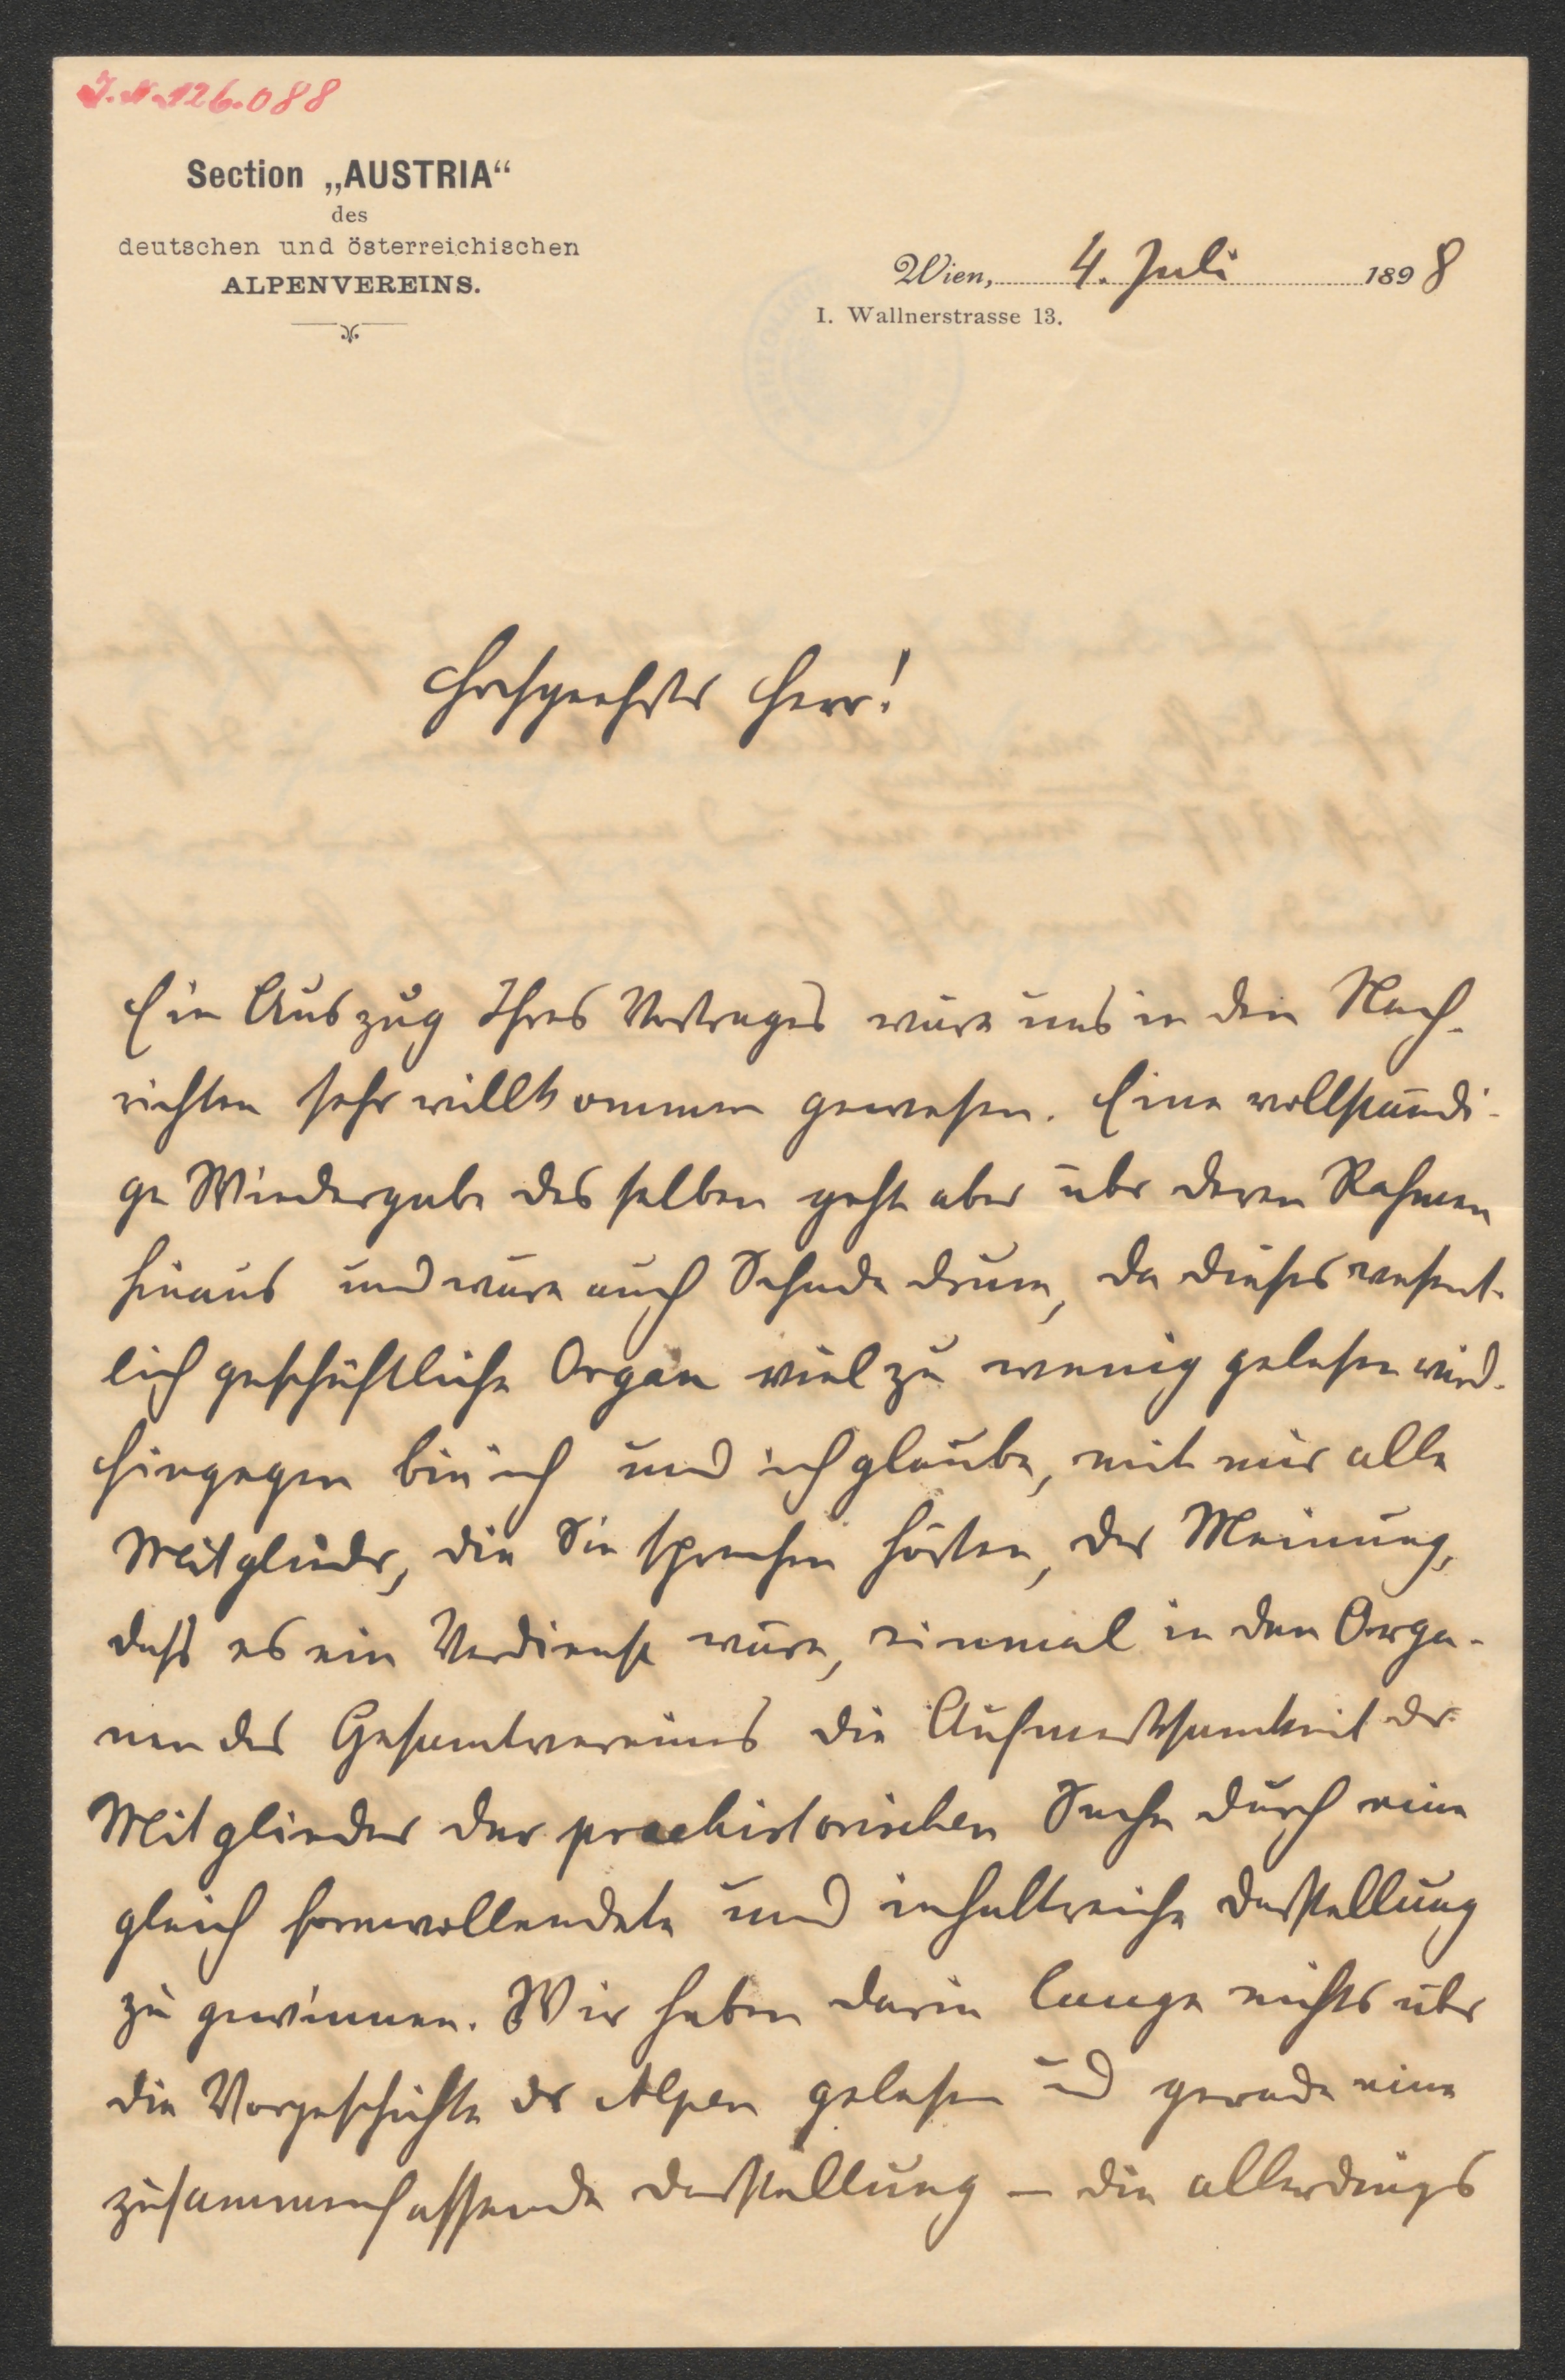 I.N. 126.088
Section „AUSTRIA“
des
deutschen und österreichischen
ALPENVEREINS.
Wien, 4. Juli 1898
I. Wallnerstrasse 13.
Hochgeehrter Herr!
Ein Auszug Ihres Vortrages wäre uns in den Nach-
richten sehr willkommen gewesen. Eine vollständi-
ge Wiedergabe desselben geht aber über deren Rahmen
hinaus und wäre auch Schade drum, da dieses wesent-
lich geschäftliche Organ viel zu wenig gelesen wird.
Hingegen bin ich und ich glaube, mit mir alle
Mitglieder, die Sie sprechen hörten, der Meinung,
daß es ein Verdienst wäre, einmal in den Orga-
nen des Gesamtvereines die Aufmerksamkeit der
Mitglieder der praehistorischen Sache durch eine
gleich formvollendete und inhaltreiche Darstellung
zu gewinnen. Wir haben darin lange nichts über
die Vorgeschichte der Alpen gelesen und gerade eine
zusammenfassende Darstellung – die allerdings